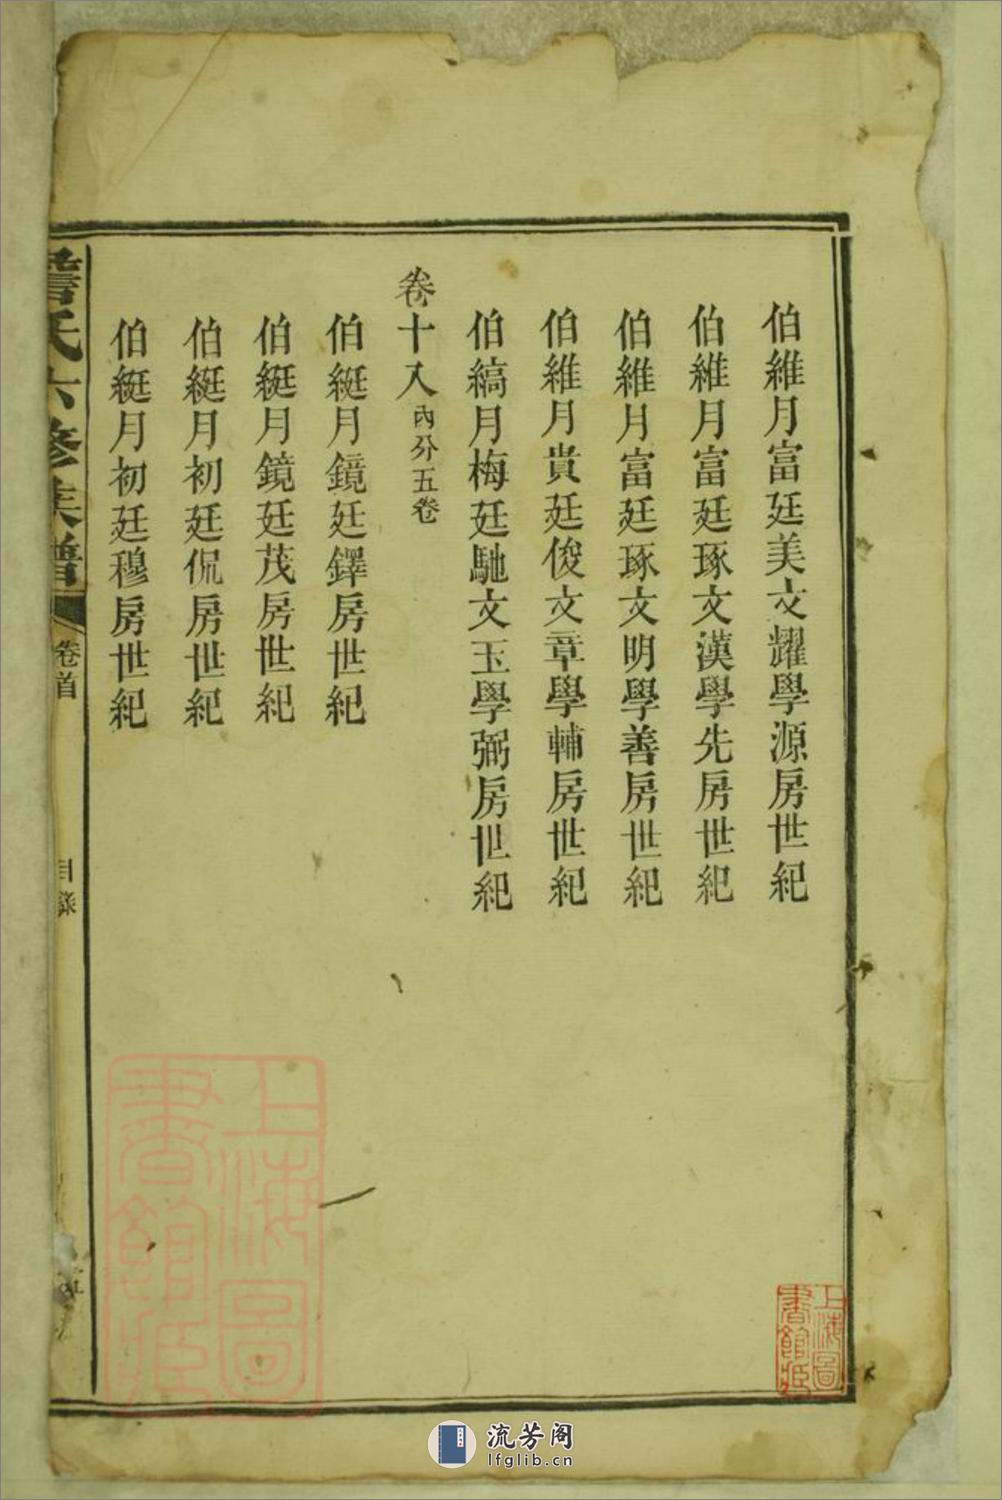 伯維月富廷美文耀學源房世紀
伯維月富廷琢文漢學先房世紀
伯維月富廷琢文明學善房世紀
伯維月貴廷俊文章學輔房世紀
伯縞月梅廷馳文玉學弼房世紀
卷十八內分五卷
伯綎月鏡廷鐸房世紀
伯綎月鏡廷茂房世紀
伯綎月初廷侃房世紀
伯綎月初廷穆房世紀
詹氏六修族譜
卷首
目錄
上海圖書館藏
上海圖書館藏
流芳阁
lfglib.cn